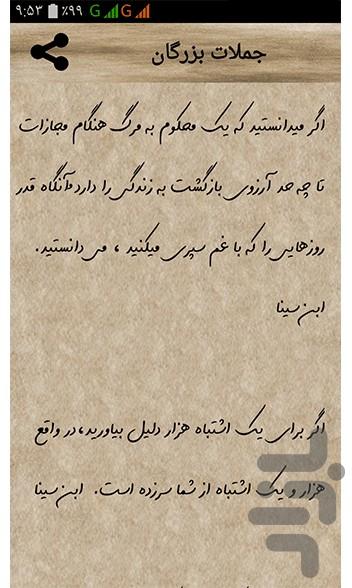 ۹:۵۳ ٪۹۹ G G
جملات بزرگان
اگر میدانستید که یک محکوم به مرگ هنگام مجازات
تا چه حد آرزوی بازگشت به زندگی را دارد،آنگاه قدر
روزهایی را که با غم سپری میکنید ، می دانستید.
ابن سینا
اگر برای یک اشتباه هزار دلیل بیاورید،در واقع
هزار و یک اشتباه از شما سرزده است. ابن سینا
بازار